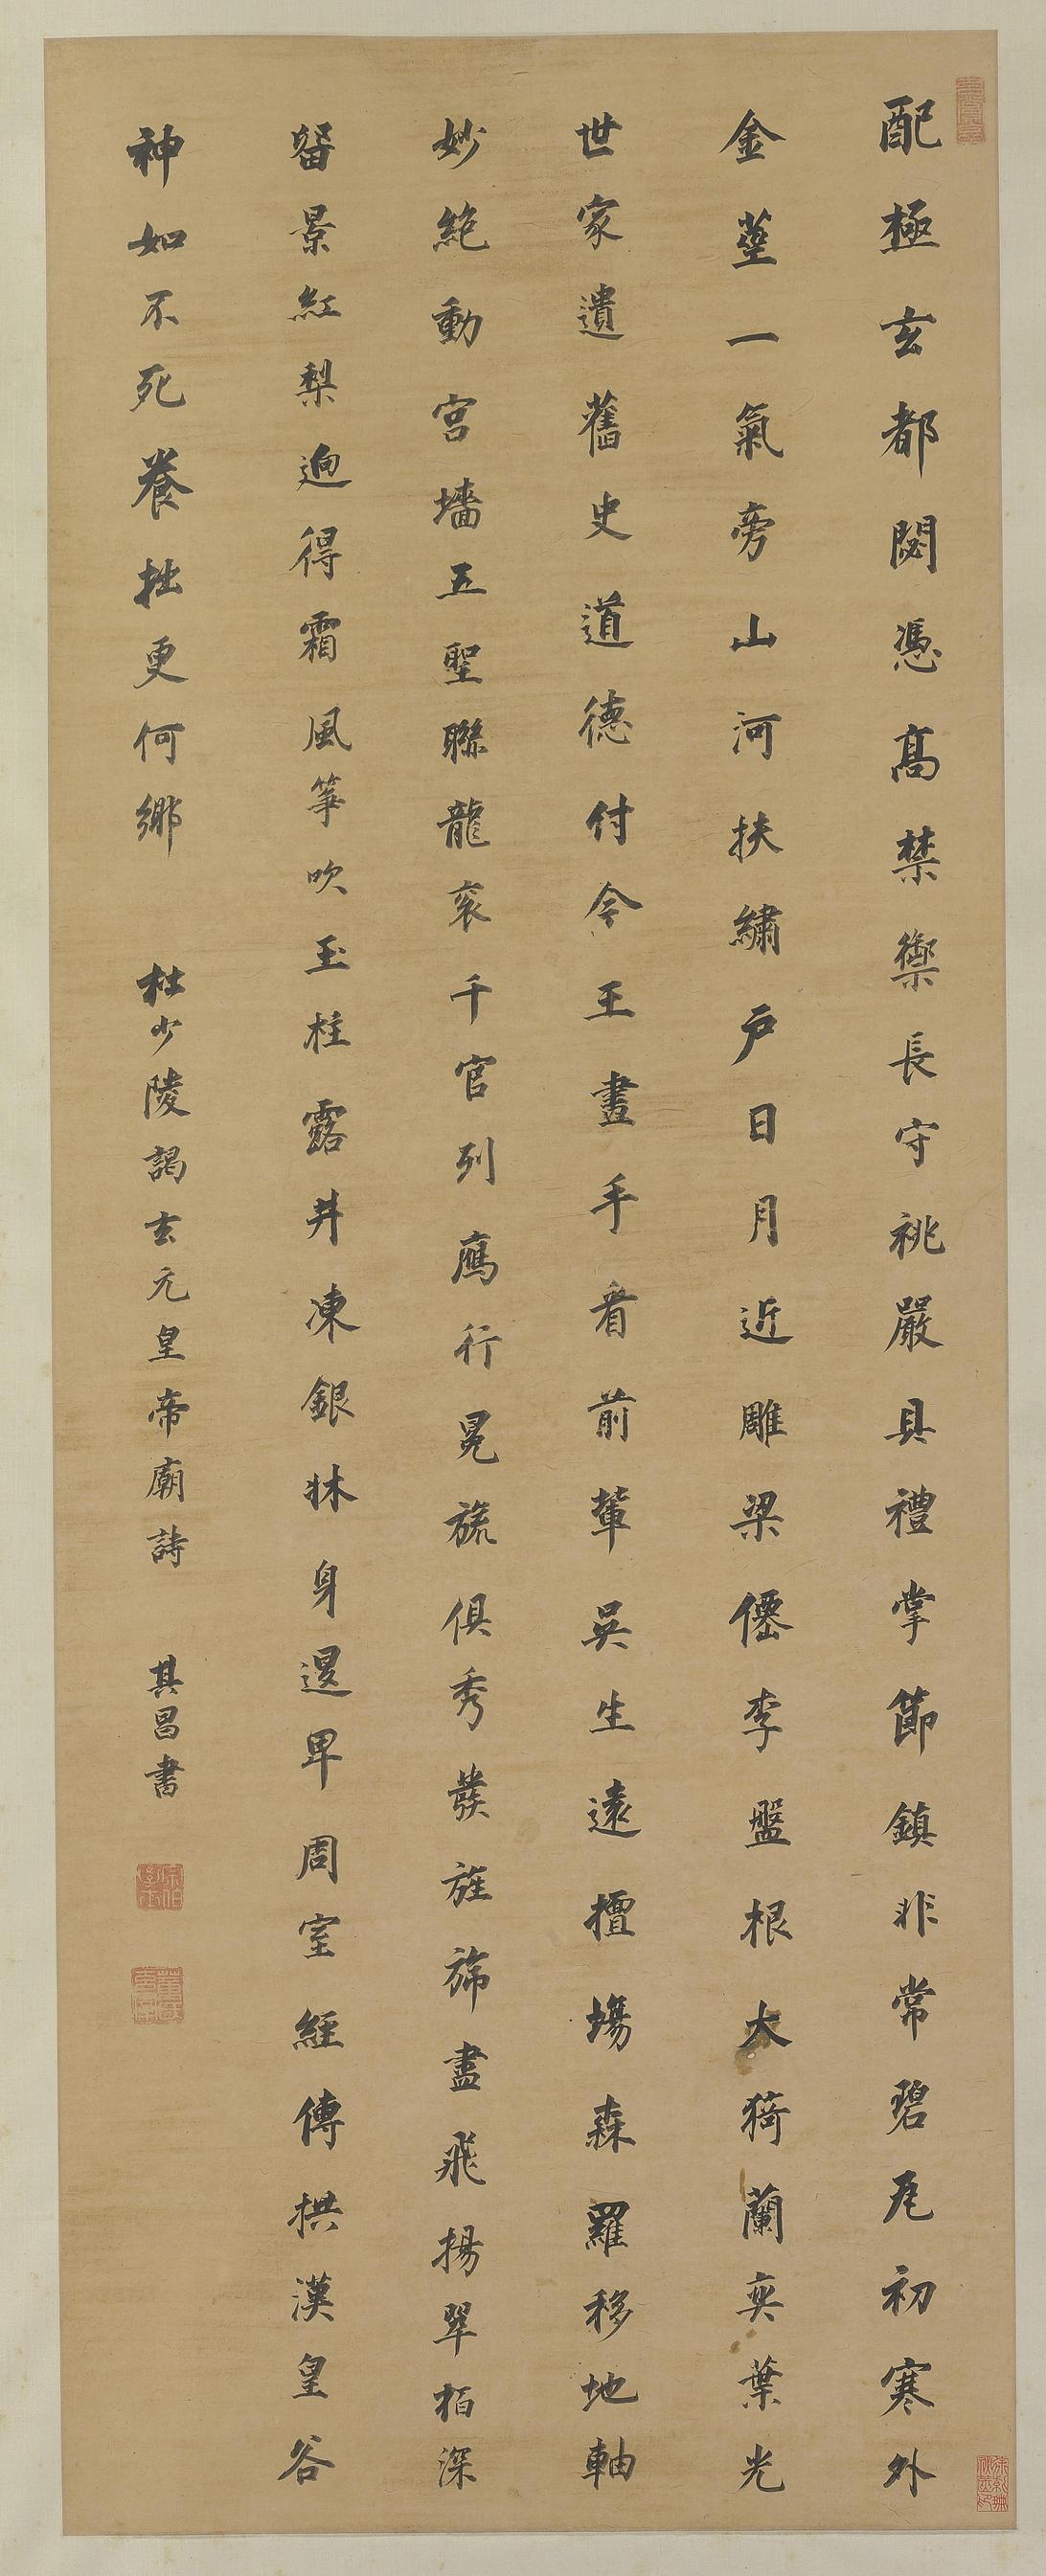 配極玄都閟憑高禁籞長守祧嚴具禮掌節鎮非常碧瓦初寒外
金莖一氣旁山河扶繡戶日月近雕梁僊李盤根大猗蘭奕葉光
世家遺舊史道德付今王畫手看前輩吳生遠擅場森羅移地軸
妙絕動宮墻五聖聯龍袞千官列鴈行冕旒俱秀發旌旆盡飛揚翠栢深
留景紅梨迥得霜風箏吹玉柱露井凍銀牀身退卑周室經傳拱漢皇谷
神如不死養拙更何鄉 杜少陵謁玄元皇帝廟詩 其昌書